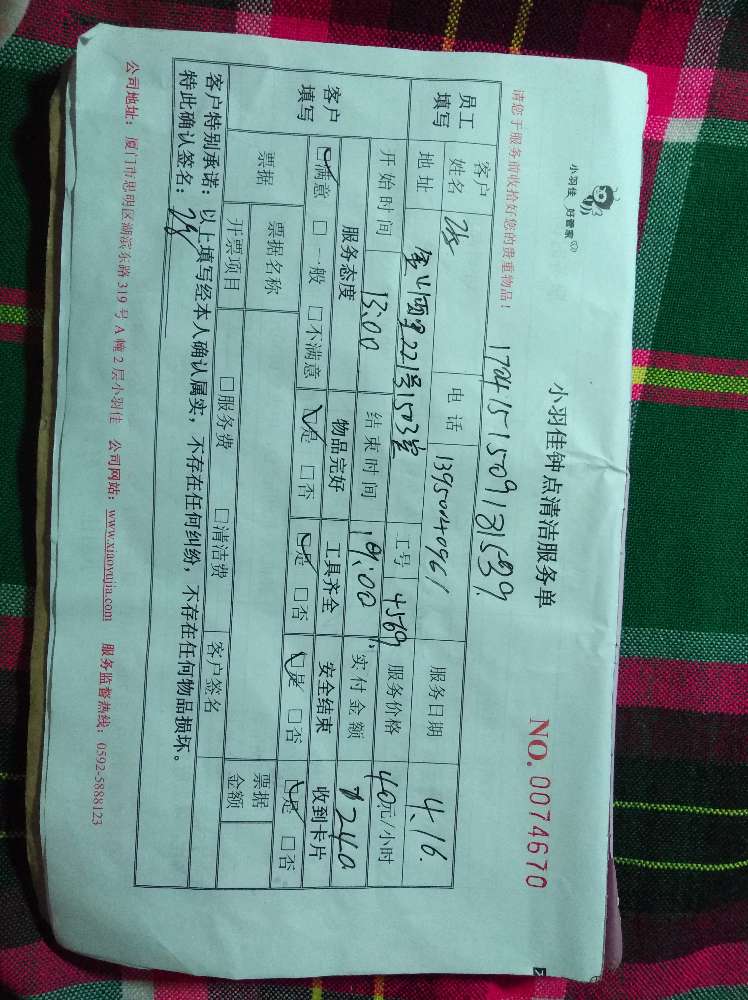 小羽佳 好管家
小羽佳钟点清洁服务单
NO. 0074670
请您于服务前收拾好您的贵重物品！
17041515091
员工填写 客户姓名 电话 13950140961 服务日期 4.16.
地址 221号1503室 工号 4569 服务价格 40元/小时
开始时间 13:00 结束时间 19:00 实付金额 240
客户填写 服务态度 物品完好 工具齐全 安全结束 收到卡片
☑满意 □一般 □不满意 ☑是 □否 ☑是 □否 ☑是 □否 ☑是 □否
票据 票据名称 票据金额
开票项目 □服务费 □清洁费 客户签名
客户特别承诺：以上填写经本人确认属实，不存在任何纠纷，不存在任何物品损坏。
特此确认签名：
公司地址：厦门市思明区湖滨东路 319 号 A 幢 2 层小羽佳 公司网站：www.xiaoyujia.com 服务监督热线：0592-5888123